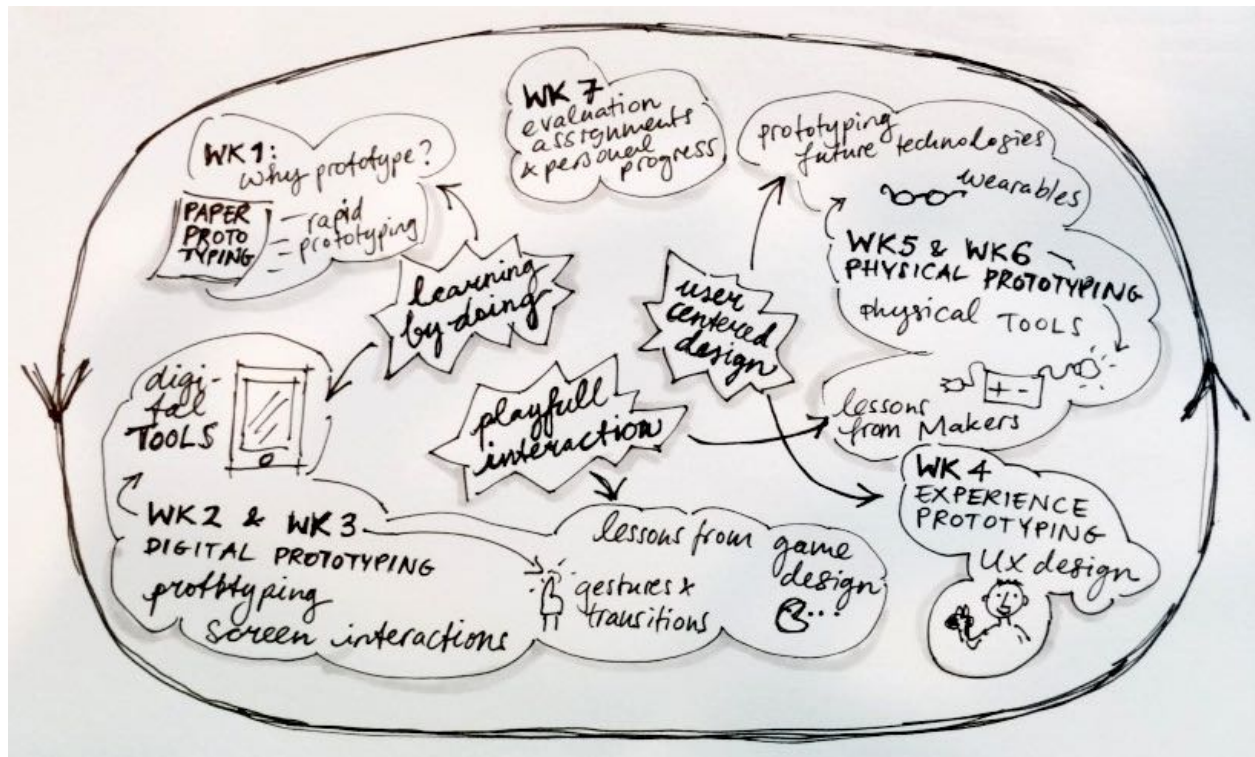 WK1:
why prototype?
PAPER
PROTO
TYPING
– rapid
– prototyping
–
WK 7
evaluation
assignments
& personal
progress
prototyping
future technologies
wearables
WK5 & WK6
PHYSICAL PROTOTYPING
physical TOOLS
lessons
from Makers
+ -
learning
by doing
user
centered
design
playfull
interaction
digi-
tal
TOOLS
WK2 & WK3
DIGITAL PROTOTYPING
protbtyping
screen interactions
lessons from game
design
gestures &
transitions
WK 4
EXPERIENCE
PROTOTYPING
UX design